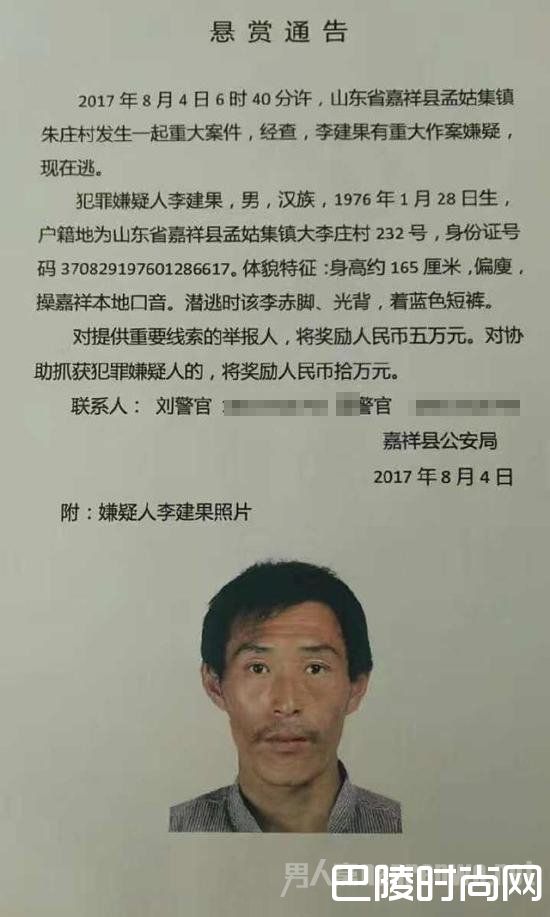 悬赏通告
2017年8月4日6时40分许，山东省嘉祥县孟姑集镇
朱庄村发生一起重大案件，经查，李建果有重大作案嫌疑，
现在逃。
犯罪嫌疑人李建果，男，汉族，1976年1月28日生，
户籍地为山东省嘉祥县孟姑集镇大李庄村232号，身份证号
码370829197601286617。体貌特征：身高约165厘米，偏廋，
操嘉祥本地口音。潜逃时该李赤脚、光背，着蓝色短裤。
对提供重要线索的举报人，将奖励人民币五万元。对协
助抓获犯罪嫌疑人的，将奖励人民币拾万元。
联系人：刘警官 警官
嘉祥县公安局
2017年8月4日
附：嫌疑人李建果照片
巴陵时尚网